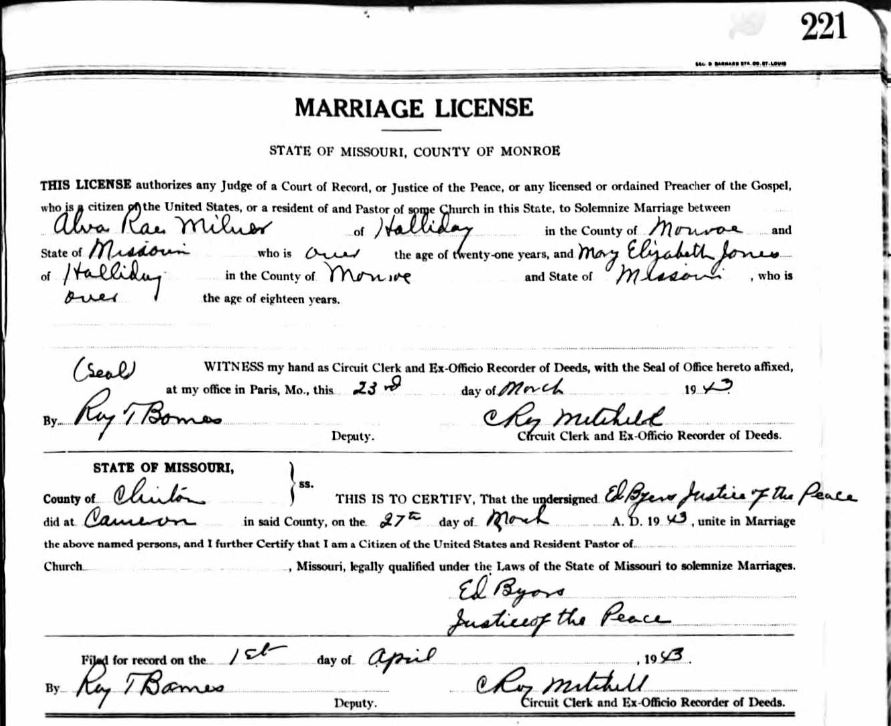 221
GEO. D BARNARD STA. CO. ST. LOUIS
MARRIAGE LICENSE
STATE OF MISSOURI, COUNTY OF MONROE
THIS LICENSE authorizes any Judge of a Court of Record, or Justice of the Peace, or any licensed or ordained Preacher of the Gospel,
who is a citizen of the United States, or a resident of and Pastor of some Church in this State, to Solemnize Marriage between
Alva Rae Milner of Halliday in the County of Monroe and
State of Missouri who is over the age of twenty-one years, and Mary Elizabeth Jones
of Halliday in the County of Monroe and State of Missouri, who is
over the age of eighteen years.
(Seal) WITNESS my hand as Circuit Clerk and Ex-Officio Recorder of Deeds, with the Seal of Office hereto affixed,
at my office in Paris, Mo., this 23rd day of March 1943
By Roy T Barnes C Roy Mitchell
Deputy. Circuit Clerk and Ex-Officio Recorder of Deeds.
STATE OF MISSOURI,
County of Clinton ss. THIS IS TO CERTIFY, That the undersigned Ed Byers Justice of the Peace
did at Cameron in said County, on the 27th day of March A. D. 1943, unite in Marriage
the above named persons, and I further Certify that I am a Citizen of the United States and Resident Pastor of
Church, Missouri, legally qualified under the Laws of the State of Missouri to solemnize Marriages.
Ed Byers
Justice of the Peace
Filed for record on the 1st day of April, 1943.
By Roy T Barnes C Roy Mitchell
Deputy. Circuit Clerk and Ex-Officio Recorder of Deeds.